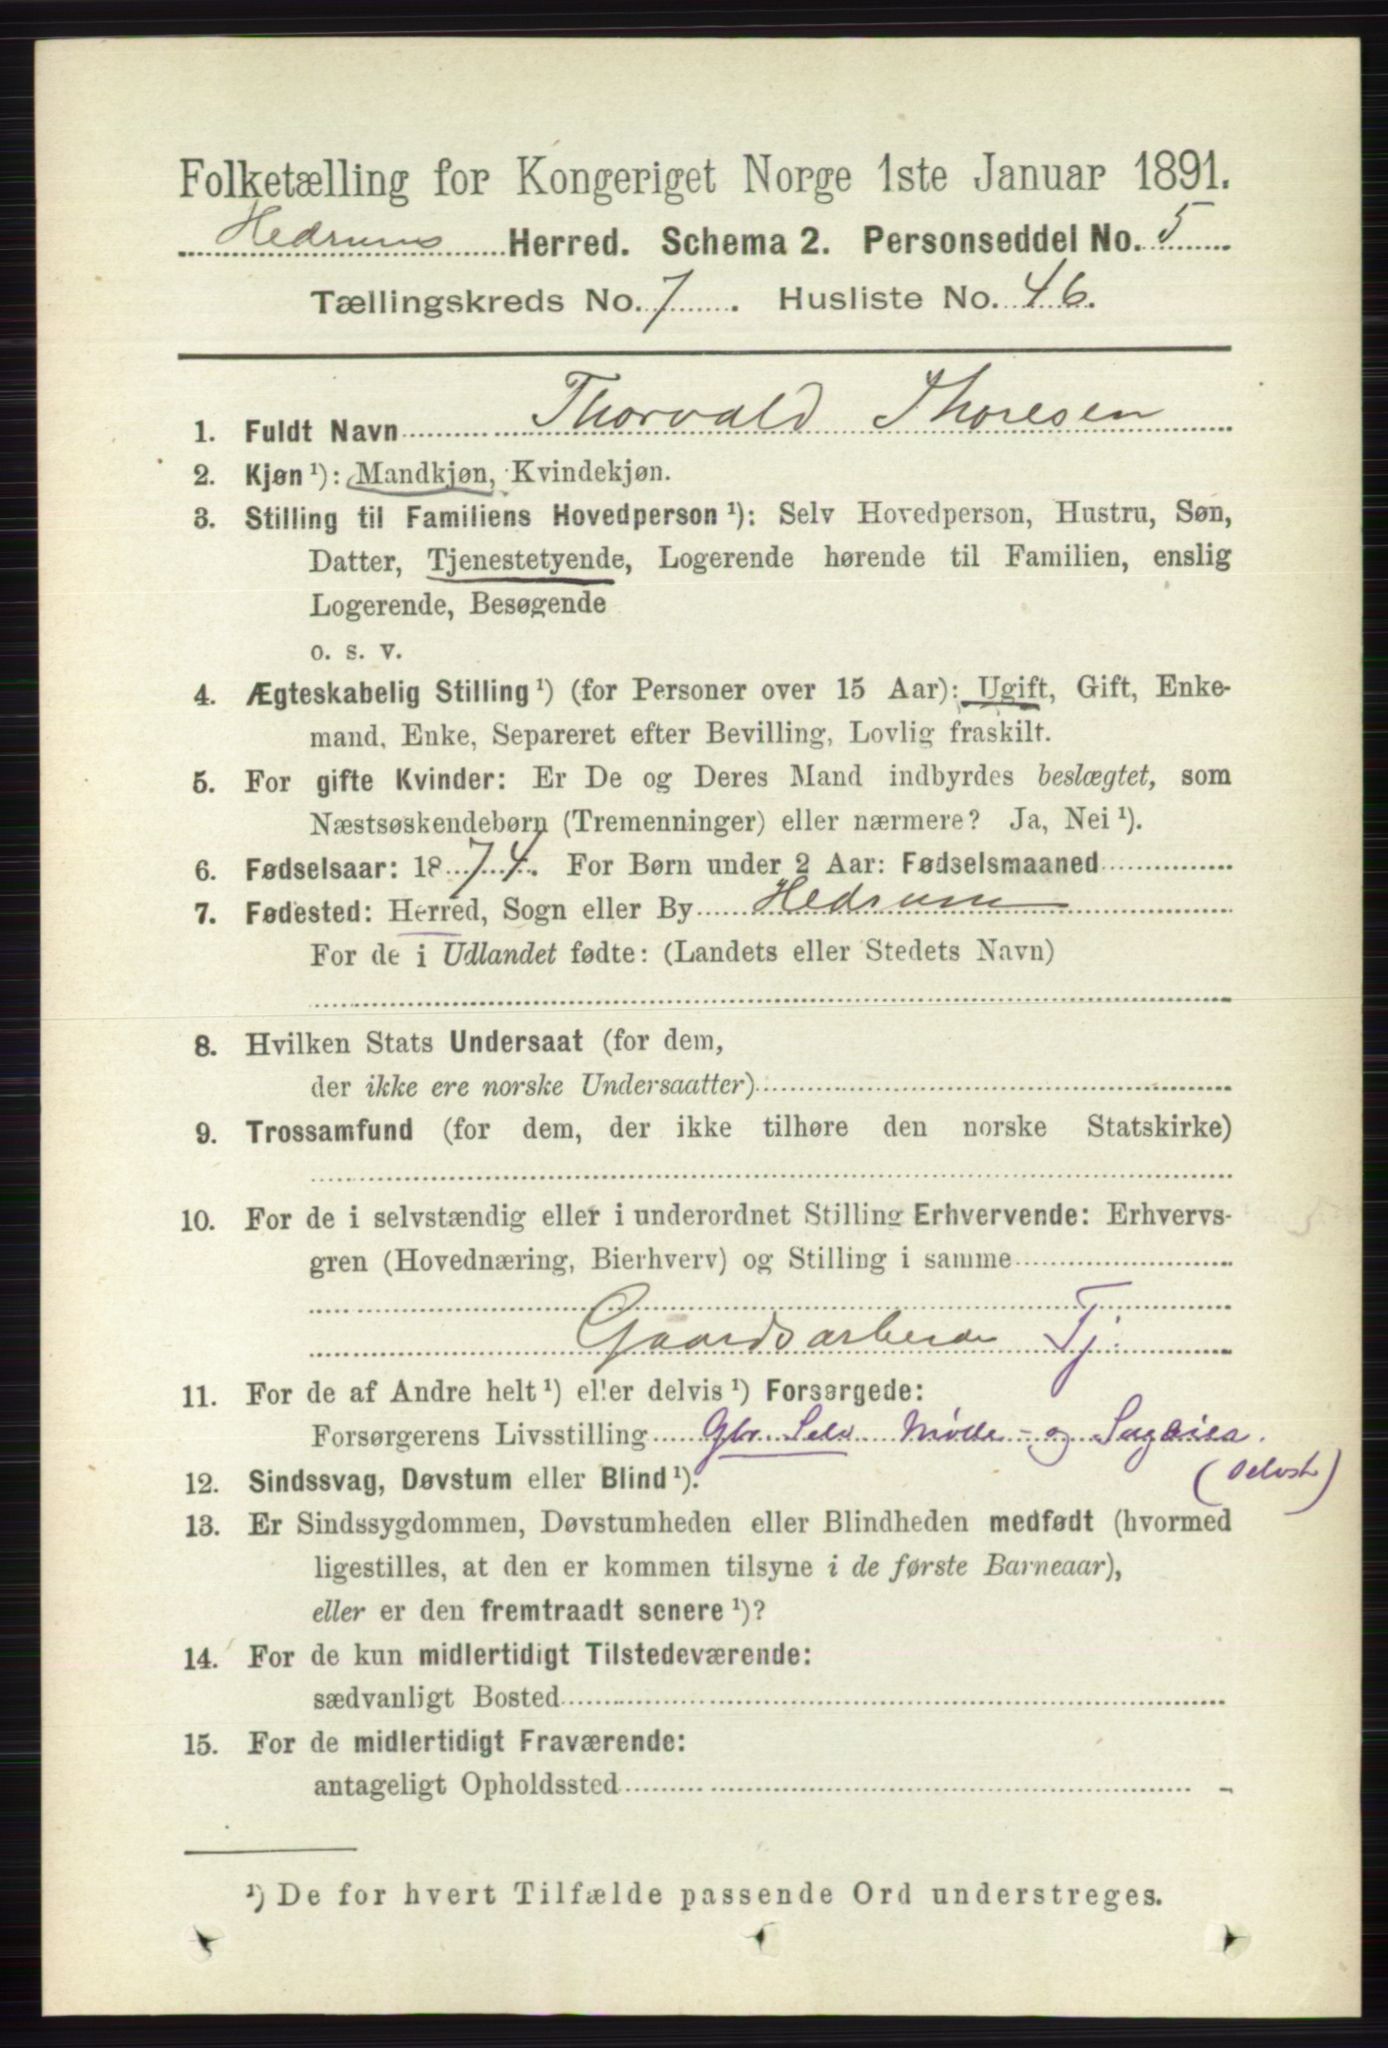 Folketælling for Kongeriget Norge 1ste Januar 1891.
Hedrums Herred. Schema 2. Personseddel No. 5
Tællingskreds No. 7. Husliste No. 46.
1. Fuldt Navn Thorvald Thoresen
2. Kjøn ¹): Mandkjøn, Kvindekjøn.
3. Stilling til Familiens Hovedperson ¹): Selv Hovedperson, Hustru, Søn,
Datter, Tjenestetyende, Logerende hørende til Familien, enslig
Logerende, Besøgende
o. s. v.
4. Ægteskabelig Stilling ¹) (for Personer over 15 Aar): Ugift, Gift, Enke-
mand, Enke, Separeret efter Bevilling, Lovlig fraskilt.
5. For gifte Kvinder: Er De og Deres Mand indbyrdes beslægtet, som
Næstsøskendebørn (Tremenninger) eller nærmere? Ja, Nei ¹).
6. Fødselsaar: 1874. For Børn under 2 Aar: Fødselsmaaned
7. Fødested: Herred, Sogn eller By Hedrum
For de i Udlandet fødte: (Landets eller Stedets Navn)
8. Hvilken Stats Undersaat (for dem,
der ikke ere norske Undersaatter)
9. Trossamfund (for dem, der ikke tilhøre den norske Statskirke)
10. For de i selvstændig eller i underordnet Stilling Erhvervende: Erhvervs-
gren (Hovednæring, Bierhverv) og Stilling i samme
Gaardsarbeide Tj.
11. For de af Andre helt ¹) eller delvis ¹) Forsørgede:
Forsørgerens Livsstilling Gbr. Selv Mølle- og Sageier.
12. Sindssvag, Døvstum eller Blind ¹).
13. Er Sindssygdommen, Døvstumheden eller Blindheden medfødt (hvormed
ligestilles, at den er kommen tilsyne i de første Barneaar),
eller er den fremtraadt senere ¹)?
14. For de kun midlertidigt Tilstedeværende:
sædvanligt Bosted
15. For de midlertidigt Fraværende:
antageligt Opholdssted
¹) De for hvert Tilfælde passende Ord understreges.